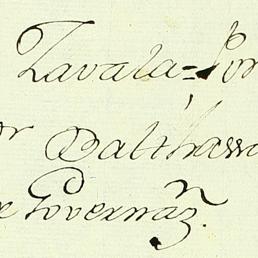 Zavala=Por
or Balthassa
e Governaz.